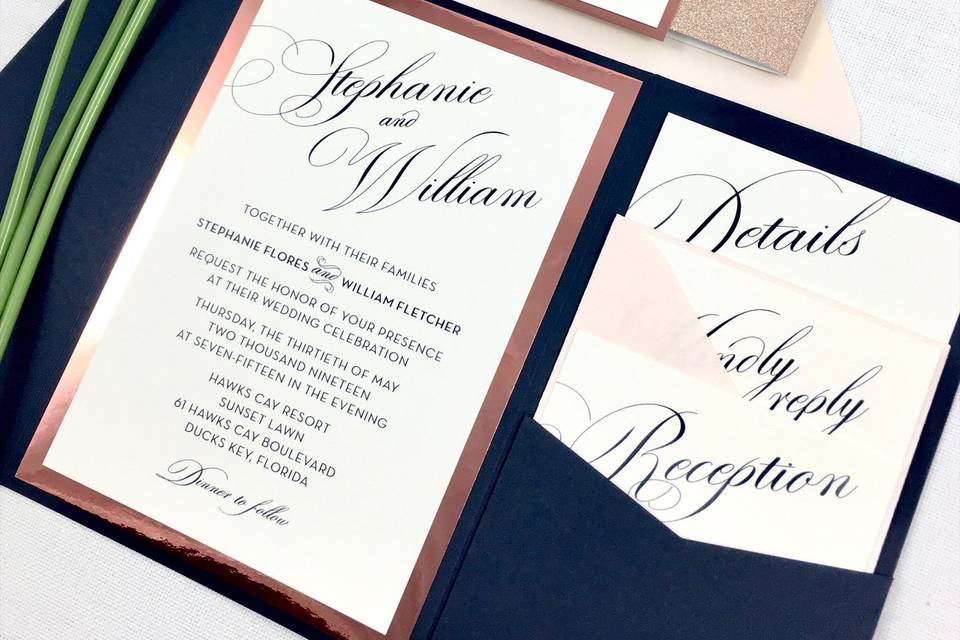 Stephanie
and
William
TOGETHER WITH THEIR FAMILIES
STEPHANIE FLORES and WILLIAM FLETCHER
REQUEST THE HONOR OF YOUR PRESENCE
AT THEIR WEDDING CELEBRATION
THURSDAY, THE THIRTIETH OF MAY
TWO THOUSAND NINETEEN
AT SEVEN-FIFTEEN IN THE EVENING
HAWKS CAY RESORT
SUNSET LAWN
61 HAWKS CAY BOULEVARD
DUCKS KEY, FLORIDA
Dinner to follow
Details
ndly
reply
Reception